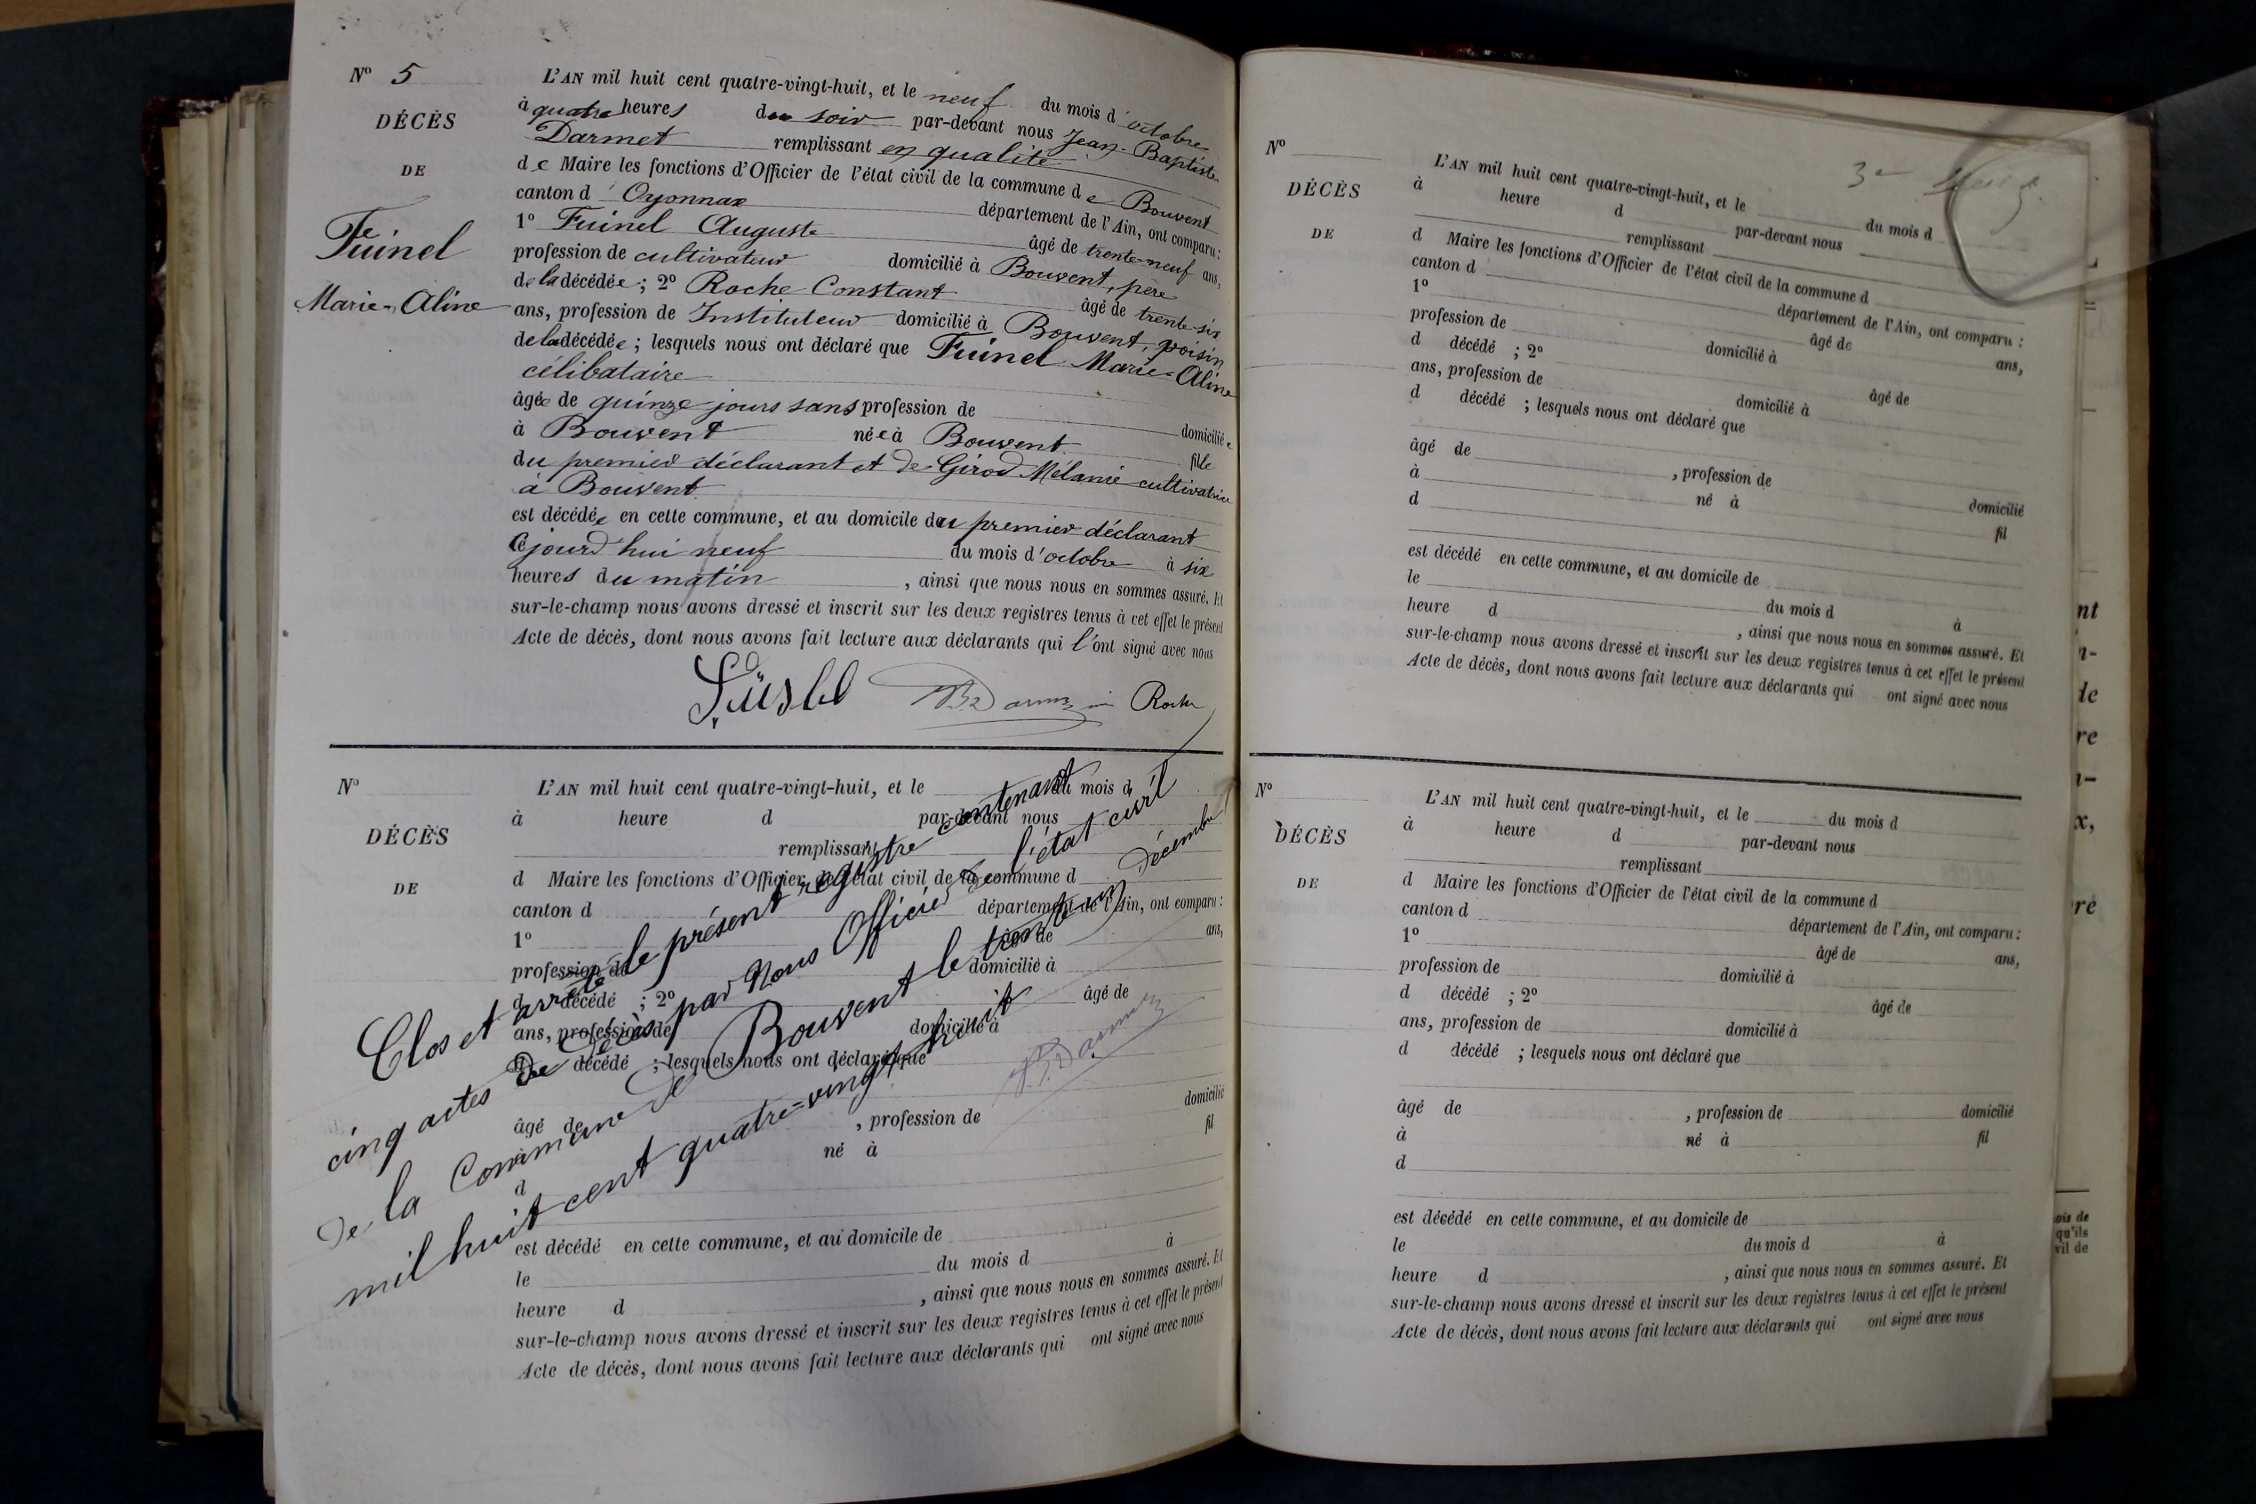 N° 5
DÉCÈS
DE
Fuinel
Marie-Aline
L'AN mil huit cent quatre-vingt-huit, et le neuf du mois d'octobre
à quatre heures du soir par-devant nous Jean-Baptiste
Darmet remplissant en qualité
de Maire les fonctions d'Officier de l'état civil de la commune de Bouvent
canton d'Oyonnax département de l'Ain, ont comparu :
1° Fuinel Auguste âgé de trente-neuf ans,
profession de cultivateur domicilié à Bouvent, père
de la décédée ; 2° Roche Constant âgé de trente-six
ans, profession de Instituteur domicilié à Bouvent, voisin
de la décédée ; lesquels nous ont déclaré que Fuinel Marie-Aline
célibataire
âgée de quinze jours sans profession de domiciliée
à Bouvent née à Bouvent fille
du premier déclarant et de Girod Mélanie cultivatrice
à Bouvent
est décédée en cette commune, et au domicile du premier déclarant
Cejourd'hui neuf du mois d'octobre à six
heures du matin , ainsi que nous nous en sommes assuré. Et
sur-le-champ nous avons dressé et inscrit sur les deux registres tenus à cet effet le présent
Acte de décès, dont nous avons fait lecture aux déclarants qui l'ont signé avec nous
Roche
N°
DÉCÈS
DE
L'AN mil huit cent quatre-vingt-huit, et le du mois d
à heure d par-devant nous
remplissant
d Maire les fonctions d'Officier de l'état civil de la commune d
canton d département de l'Ain, ont comparu :
1° âgé de ans,
profession de domicilié à
d décédé ; 2° âgé de
ans, profession de domicilié à
d décédé ; lesquels nous ont déclaré que
âgé de , profession de domicilié
à né à fil
d
est décédé en cette commune, et au domicile de
le du mois d à
heure d , ainsi que nous nous en sommes assuré. Et
sur-le-champ nous avons dressé et inscrit sur les deux registres tenus à cet effet le présent
Acte de décès, dont nous avons fait lecture aux déclarants qui ont signé avec nous
Clos et arrêté le présent registre contenant
cinq actes de décès par Nous Officier de l'état civil
de la Commune de Bouvent le trente-un Décembre
mil huit cent quatre-vingt-huit
N°
DÉCÈS
DE
3e
L'AN mil huit cent quatre-vingt-huit, et le du mois d
à heure d par-devant nous
remplissant
d Maire les fonctions d'Officier de l'état civil de la commune d
canton d département de l'Ain, ont comparu :
1° âgé de ans,
profession de domicilié à
d décédé ; 2° âgé de
ans, profession de domicilié à
d décédé ; lesquels nous ont déclaré que
âgé de , profession de domicilié
à né à fil
d
est décédé en cette commune, et au domicile de
le du mois d à
heure d , ainsi que nous nous en sommes assuré. Et
sur-le-champ nous avons dressé et inscrit sur les deux registres tenus à cet effet le présent
Acte de décès, dont nous avons fait lecture aux déclarants qui ont signé avec nous
N°
DÉCÈS
DE
L'AN mil huit cent quatre-vingt-huit, et le du mois d
à heure d par-devant nous
remplissant
d Maire les fonctions d'Officier de l'état civil de la commune d
canton d département de l'Ain, ont comparu :
1° âgé de ans,
profession de domicilié à
d décédé ; 2° âgé de
ans, profession de domicilié à
d décédé ; lesquels nous ont déclaré que
âgé de , profession de domicilié
à né à fil
d
est décédé en cette commune, et au domicile de
le du mois d à
heure d , ainsi que nous nous en sommes assuré. Et
sur-le-champ nous avons dressé et inscrit sur les deux registres tenus à cet effet le présent
Acte de décès, dont nous avons fait lecture aux déclarants qui ont signé avec nous